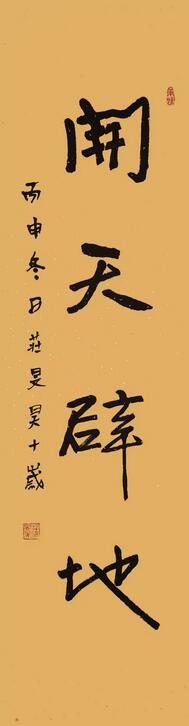 開天辟地
丙申冬日莊旻昊十歲